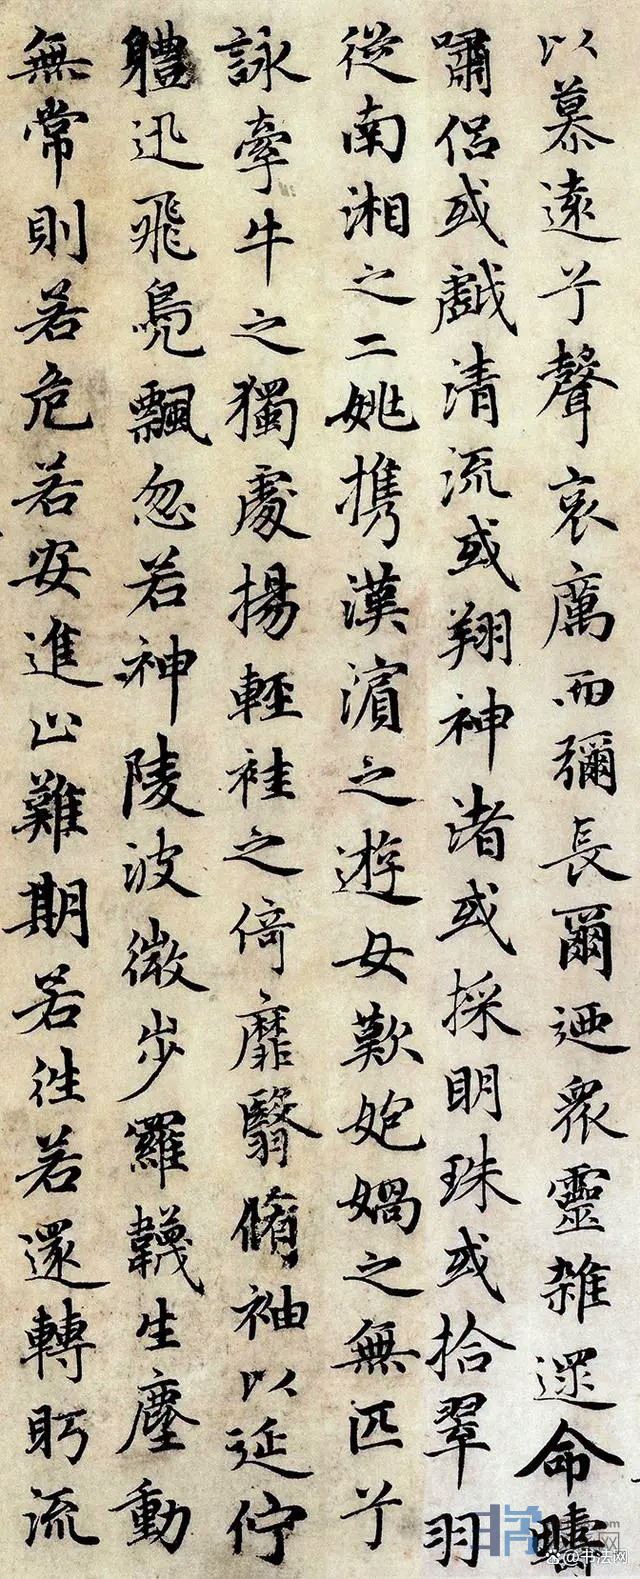 以慕遠兮聲哀厲而彌長爾迺衆靈雜遝命疇
嘯侣或戲清流或翔神渚或採明珠或拾翠羽
從南湘之二姚携漢濵之遊女歎匏媧之無匹兮
詠牽牛之獨處揚輕袿之倚靡翳脩袖以延佇
軆迅飛鳧飄忽若神陵波微步羅韈生塵動
無常則若危若安進止難期若往若還轉眄流
@书法网